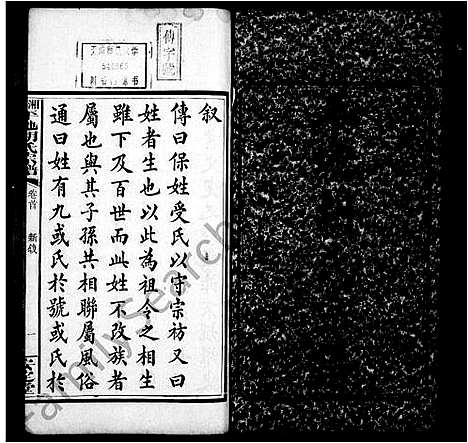 叙
傳曰保姓受氏以守宗祊又曰
姓者生也以此為祖令之相生
雖下及百世而此姓不改族者
屬也與其子孫其相聯屬風俗
通曰姓有九或氏於號或氏於
卷首
一
傳字號
FamilySearch